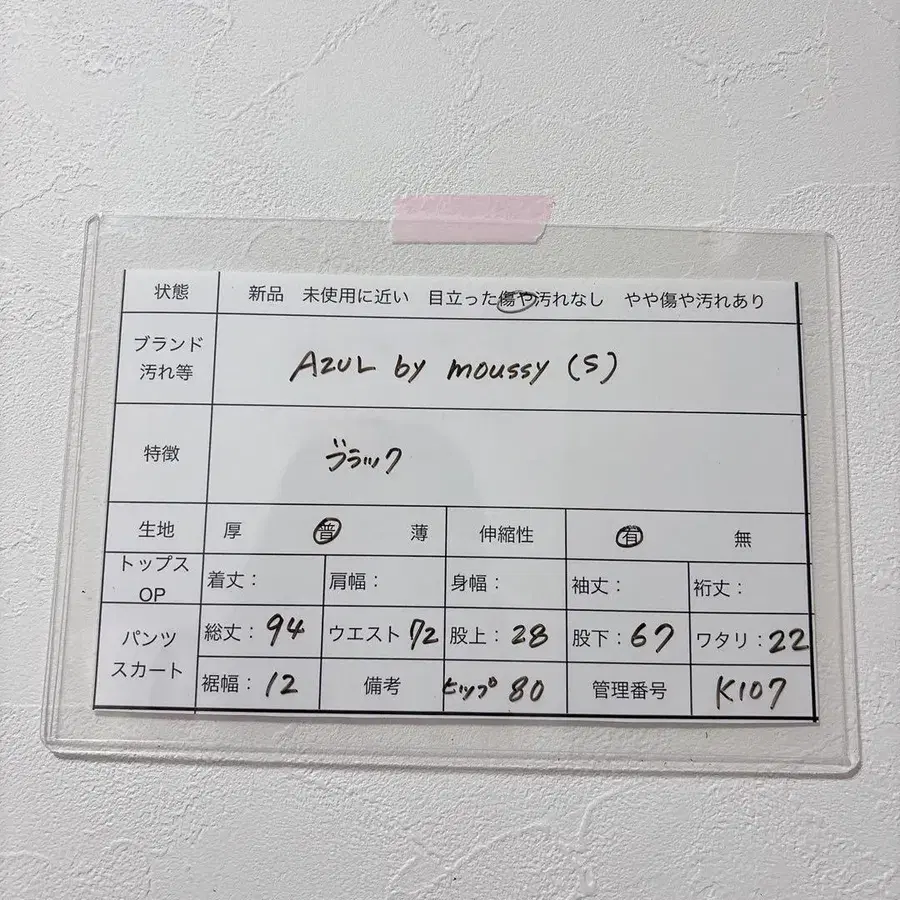 状態 新品 未使用に近い 目立った傷や汚れなし やや傷や汚れあり
ブランド
汚れ等
AZUL by moussy (S)
特徴 ブラック
生地 厚 普 薄 伸縮性 有 無
トップス
OP
着丈： 肩幅： 身幅： 袖丈： 裄丈：
パンツ
スカート
総丈：94 ウエスト 72 股上：28 股下：67 ワタリ：22
裾幅：12 備考 ヒップ 80 管理番号 K107